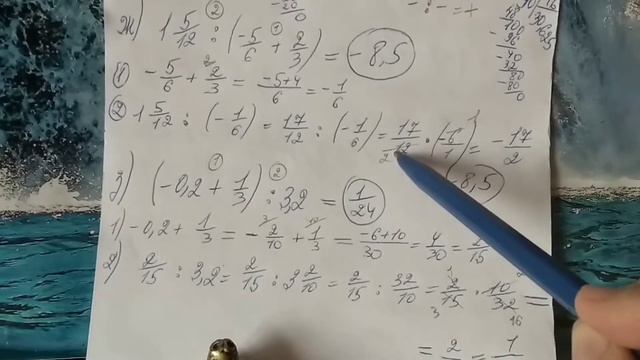 ж) 1 5/12 : (-5/6 + 2/3) = -8,5
① -5/6 + 2/3 = -5+4/6 = -1/6
② 1 5/12 : (-1/6) = 17/12 : (-1/6) = 17/12 · (-6/1) = -17/2
-8,5
з) (-0,2 + 1/3) : 3,2 = 1/24
1) -0,2 + 1/3 = -2/10 + 1/3 = -6+10/30 = 4/30 = 2/15
2) 2/15 : 3,2 = 2/15 : 3 2/10 = 2/15 : 32/10 = 2/15 · 10/32 =
= 2 = 1